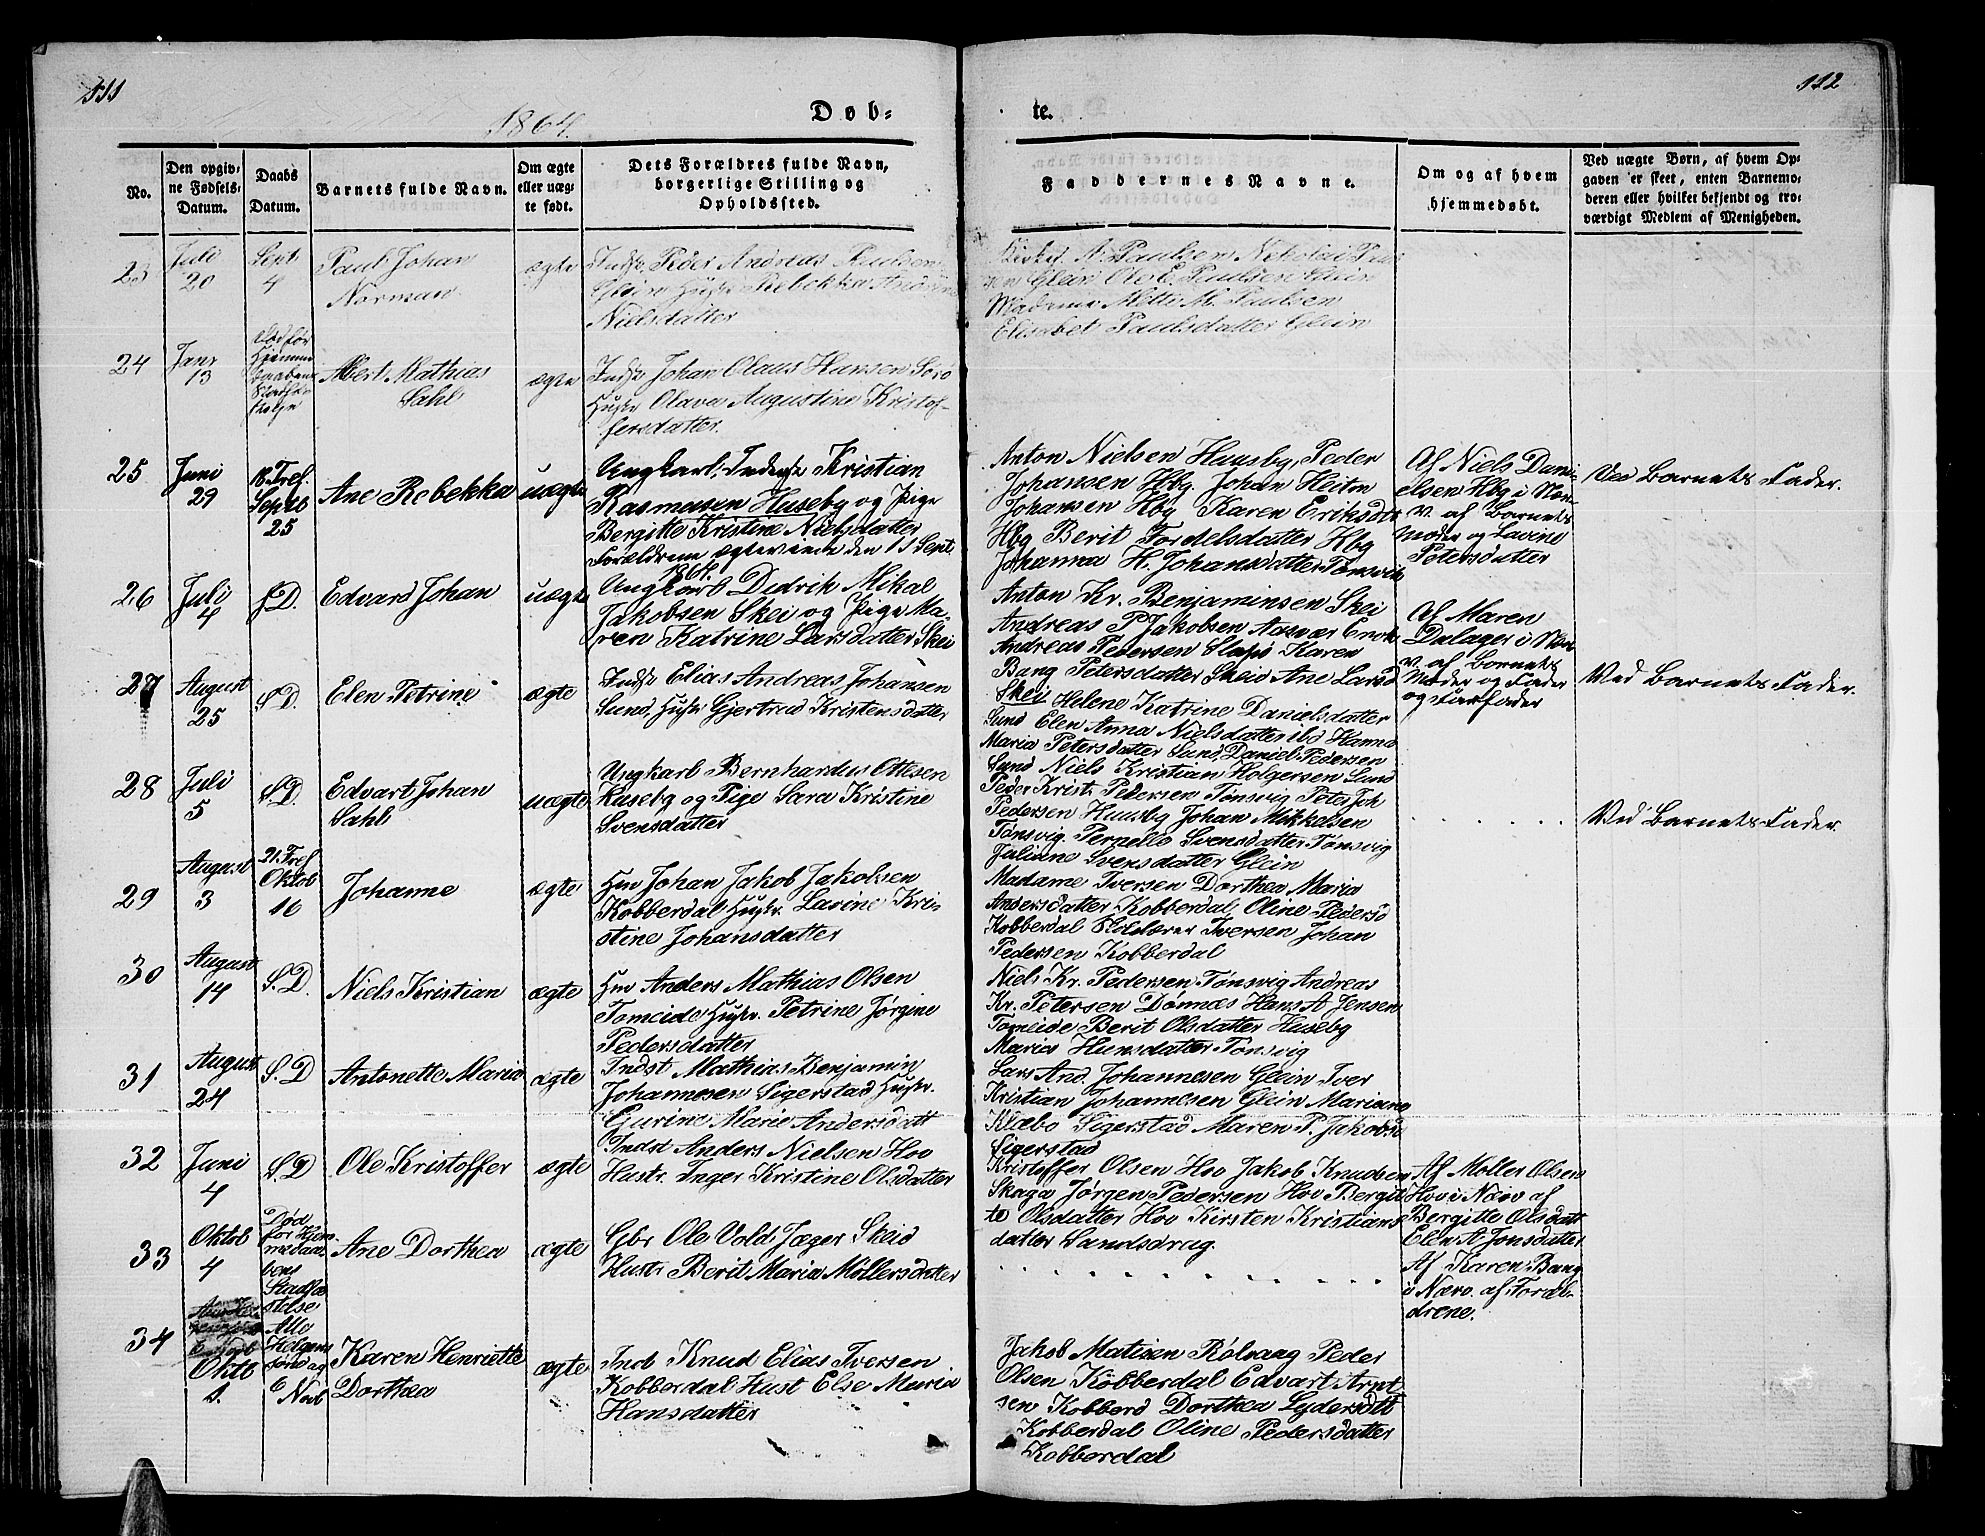 111
112
1864.
Døb-
te.
No.
Den opgiv-
ne Fødsels-
Datum.
Daabs
Datum.
Barnets fulde Navn.
Om ægte
eller uæg-
te født.
Dets Forældres fulde Navn,
borgerlige Stilling og
Opholdssted.
Faddernes Navne.
Om og af hvem
hjemmedøbt.
Ved uægte Børn, af hvem Op-
gaven er skeet, enten Barnemo-
deren eller hvilket bekjendt og tro-
værdigt Medlem af Menigheden.
23
Juli
20
Sept
4
Paul Johan
Norman
ægte
Indst Peder Andreas Paulsen
Glein Hustr Rebekka And
Nielsdatter
Kirkes. A. Paulsen Nikolai
Glein Ole E. Paulsen Glein
Madame Mette M. Paulsen
Elisabet Paulsdatter Glein
24
Janr
13
Død før
Hjemme
daabens
Stadfæ-
stelse
Albert Mathias
Dahl
ægte
Indst Johan Olaus Hansen
Hustr Olava Augustine Kristof-
fersdatter.
25
Juni
29
18. Tref.
Septb
25
Ane Rebekka
uægte
Ungkarl, Inderst Kristian
Rasmusen Huseby og Pige
Bergitte Kristine Nielsdatter
Forældrene ægteviede den 11 Sept
1864.
Anton Nielsen Huusby, Peder
Johansen Hbg. Johan Heiton
Johansen Hbg Karen Eriksdtr
Hbg Berit Tordelsdatter Hbg
Johanna H. Johansdatter Tønsvik
Af Niels Dani-
elsen Hbg i Nær-
v. af Barnets
Moder og Lavine
Petersdatter
Ved Barnets Fader.
26
Juli
4
S.D.
Edvard Johan
uægte
Ungkarl Didrik Mikal
Jakobsen Skei og Pige Ma-
ren Katrine Larsdatter Skei
Anton Kr. Benjaminsen Skei
Andreas P Jakobsen Aasvær Enok
Andreas Pedersen Slapø Karen
Bang Petersdatter Skeid Ane Larsd
Skei
Af Maren
Dalager i Nær
v. af Barnets
Moder og Fader
og Farfader
Ved Barnets Fader.
27
August
25
S.D.
Elen Petrine
ægte
Indst Elias Andreas Johansen
Sund Hustr Gjertrud Kristensdatter
Helene Katrine Danielsdatter
Sund Elen Anna Nielsdatter ibd Hanna
Maria Petersdatter Sund, Daniel Pedersen
Sund Niels Kristian Holgersen Sund
28
Juli
5
S.D.
Edvart Johan
Dahl
uægte
Ungkarl Bernhardus Ottesen
Huseby og Pige Sara Kristine
Svensdatter
Peder Krist. Pedersen Tønsvig Peter Joh
Pedersen Huusby Johan Mikkelsen
Tønsvig. Pernelle Svensdatter Tønsvig
Juliane Svensdatter Glein
Ved Barnets Fader.
29
August
3
21. Tref
Oktob
16
Johanne
ægte
Hm Johan Jakob Jakobsen
Kobberdal Hustr. Lavine Kri-
stine Johansdatter
Madame Iversen Dorthea Maria
Andersdatter Kobberdal, Oline Pedersd
Kobberdal Iversen Johan
Pedersen Kobberdal
30
August
14
S.D.
Niels Kristian
ægte
Hm Anders Mathias Olsen
Tomeide Hustr. Petrine Jørgine
Pedersdatter
Niels Kr. Pedersen Tønsvig Andreas
Kr. Petersen Dønnæs Hans A Jensen
Tomeide Berit Olsdatter Huseby
Maria Hansdatter Tønsvig
31
August
24
S.D
Antonette Maria
ægte
Indst Mathias Benjamin
Johannesen Sigerstad Hustr.
Gurine Marie Andersdatt
Lars And. Johannesen Glein Iver
Kristian Johannesen Glein Mariane
Klæbo Sigerstad Maren P. Jakobsd
Sigerstad
32
Juni
4
S.D
Ole Kristoffer
ægte
Indst Anders Nielsen Hov
Hustr. Inger Kristine Olsdatter
Kristoffer Olsen Hov Jakob Knudsen
Skaga Jørgen Pedersen Hov Bergit
te Olsdatter Hov Kirsten Kristians
datter Sandsdrag.
Af Møller Olsen
Hov i Nærv af
Bergitte Olsdatt
Elen A Jonsdatter
33
Oktob
4
Død
før Hjem-
medaa
bens
Stadfæ
stelse
Ane Dorthea
ægte
Gbr Ole Vold Jæger Skeid
Hustr Berit Maria Möllersdatter
Af Karen Bang
i Nærv. af Foræl-
drene.
34
Oktb
1.
Alle
Helgens
søndag
6 Novb
Karen Henriette
Dorthea
ægte
Indb Knud Elias Iversen
Kobberdal Hust Else Maria
Hansdatter
Jakob Matisen Rølvang Peder
Olsen Kobberdal Edvart Arnt
sen Kobberd Dorthea Lydersdtt
Kobberdal Oline Pedersdatter
Kobberdal